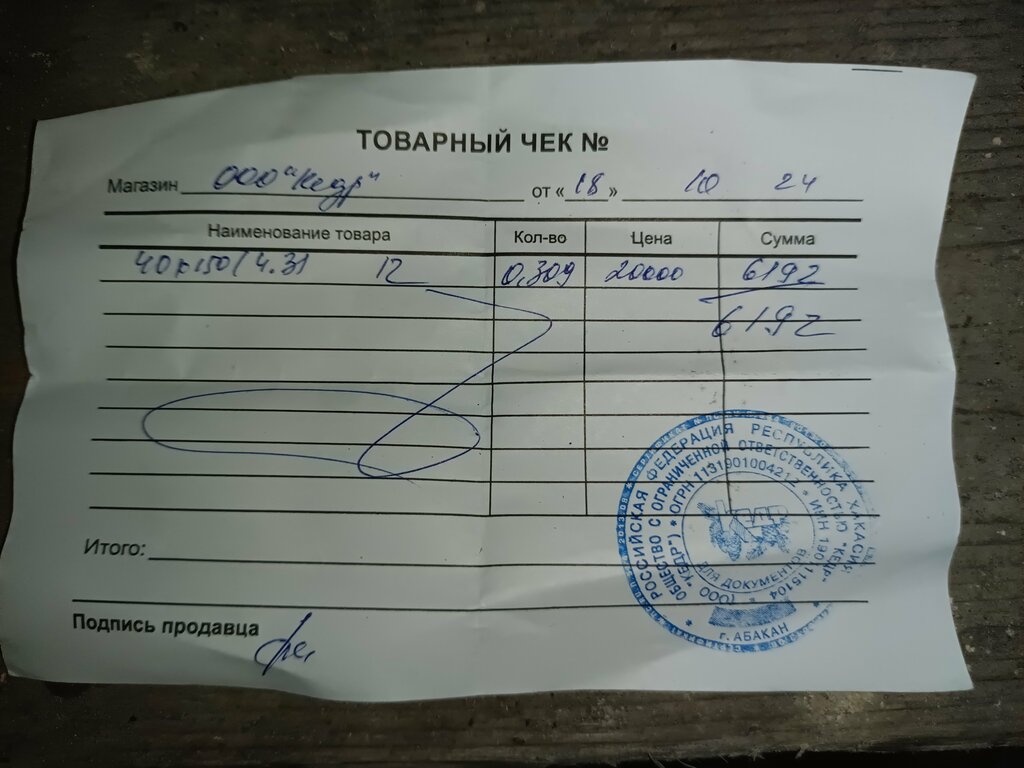 ТОВАРНЫЙ ЧЕК №
Магазин ООО "Кедр" от « 18 » 10 24
Наименование товара Кол-во Цена Сумма
40х150(4.3) 12 0,309 20000 6192
6192
РОССИЙСКАЯ ФЕДЕРАЦИЯ РЕСПУБЛИКА ХАКАСИЯ
ОБЩЕСТВО С ОГРАНИЧЕННОЙ ОТВЕТСТВЕННОСТЬЮ "КЕДР"
(ООО "КЕДР") * ОГРН 1131901004212 * ИНН 1901115104 *
КЕДР
ДЛЯ ДОКУМЕНТОВ
г. АБАКАН
Итого:
Подпись продавца